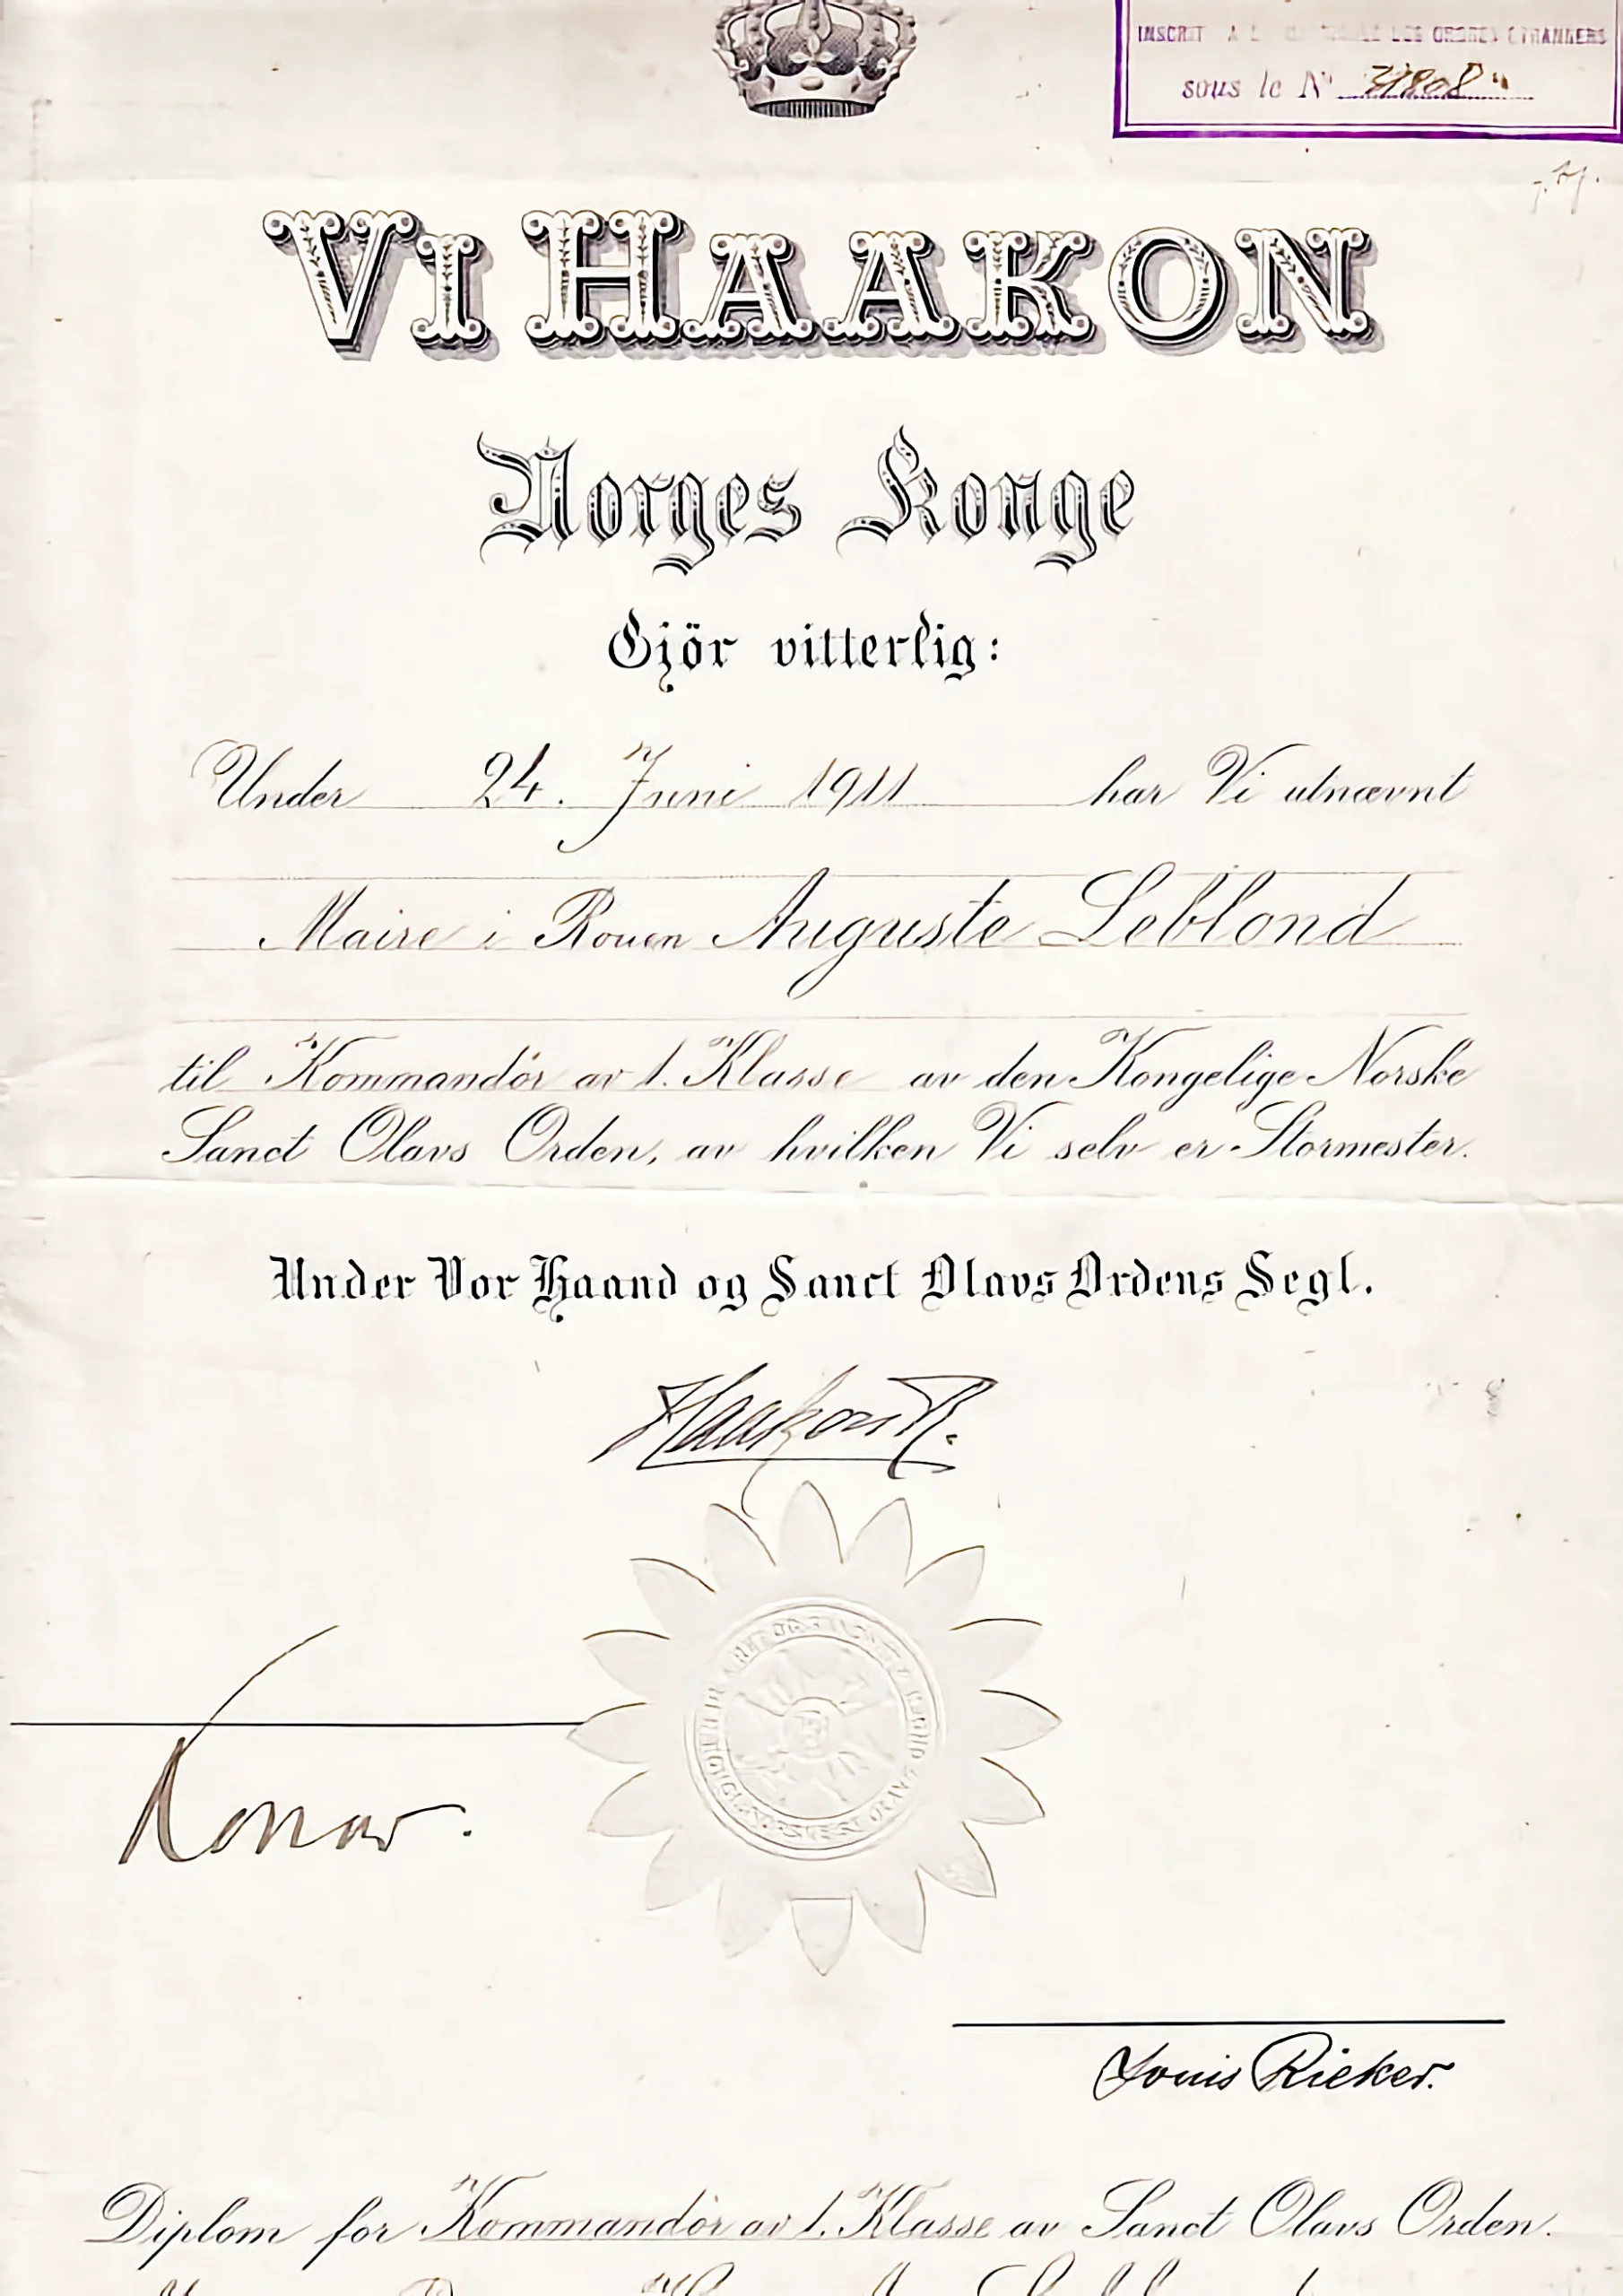 INSCRIT A L ORDRES ETRANGERS
sous le N° 31808
VI HAAKON
Norges Konge
Gjör vitterlig:
Under 24. Juni 1911 har Vi utnævnt
Maire i Rouen Auguste Leblond
til Kommandör av 1. Klasse av den Kongelige Norske
Sanct Olavs Orden, av hvilken Vi selv er Stormester.
Under Vor Haand og Sanct Olavs Ordens Segl.
Haakon R.
Louis Rieker.
Diplom for Kommandör av 1. Klasse av Sanct Olavs Orden.